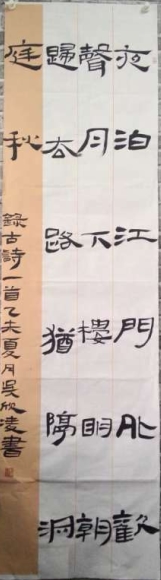 夜泊江門外歡
聲月下樓明朝
歸去路猶隔洞
庭秋
錄古詩一首乙未夏月吳欣凌書